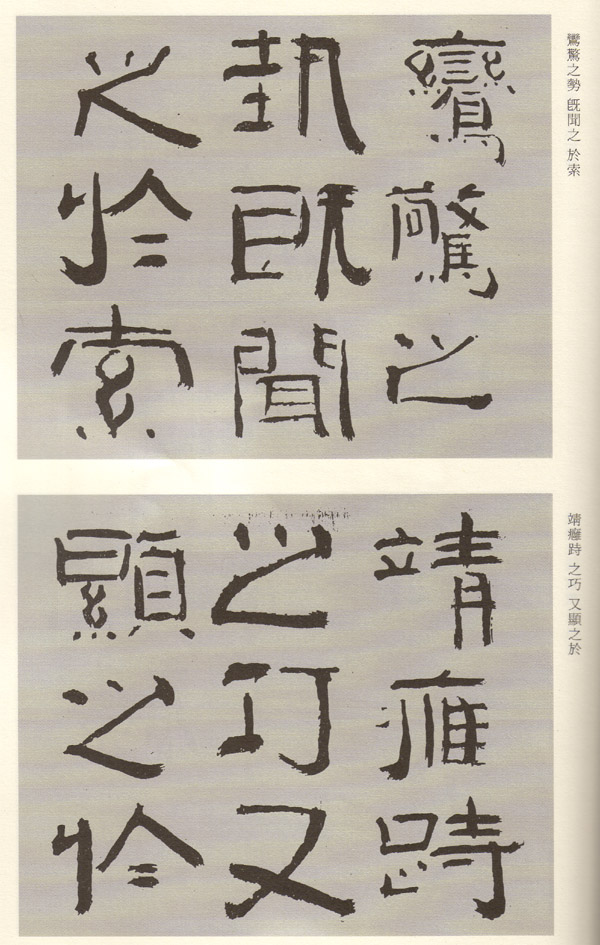 鸞驚之
埶既聞
之於索
鸞驚之勢 既聞之 於索
靖跱
之巧又
顯之於
靖跱 之巧 又顯之於